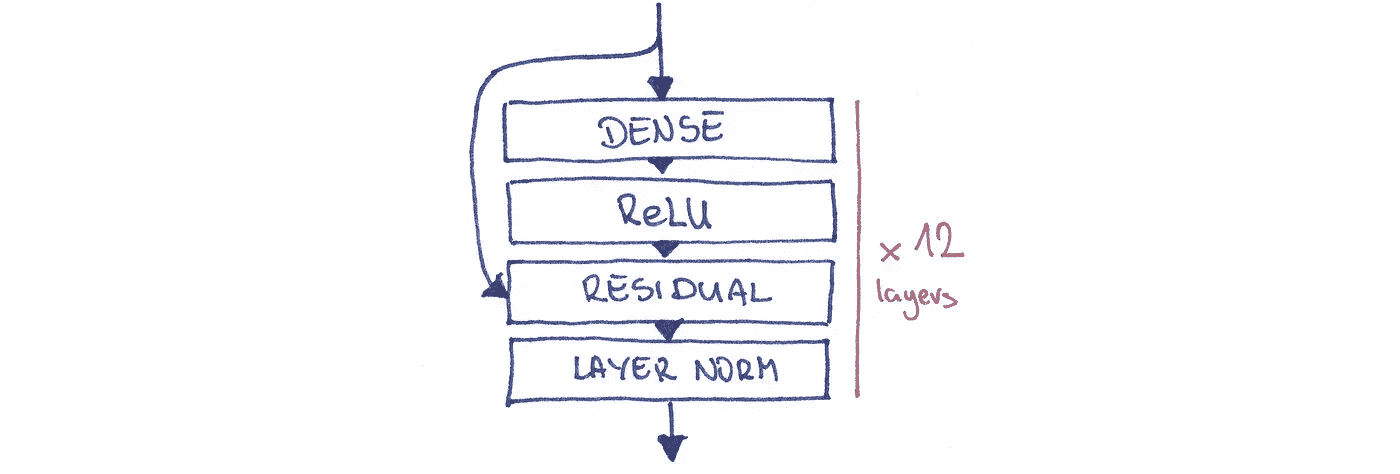 DENSE
ReLU
RESIDUAL
LAYER NORM
x 12
layers